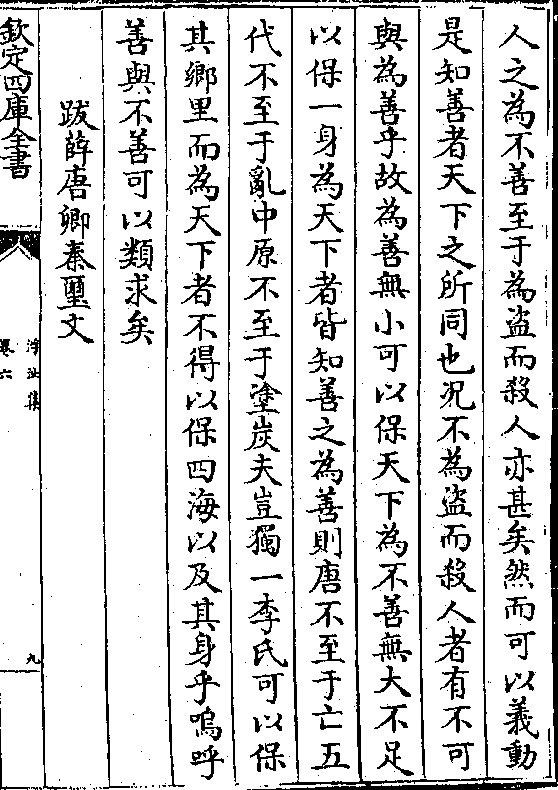 人之為不善至于為盜而殺人亦甚矣然而可以義動
是知善者天下之所同也況不為盜而殺人者有不可
與為善乎故為善無小可以保天下為不善無大不足
以保一身為天下者皆知善之為善則唐不至于亡五
代不至于亂中原不至于塗炭夫豈獨一李氏可以保
其鄉里而為天下者不得以保四海以及其身乎嗚呼
善與不善可以類求矣
跋薛唐卿秦璽文
欽定四庫全書
浮沚集
卷六
九